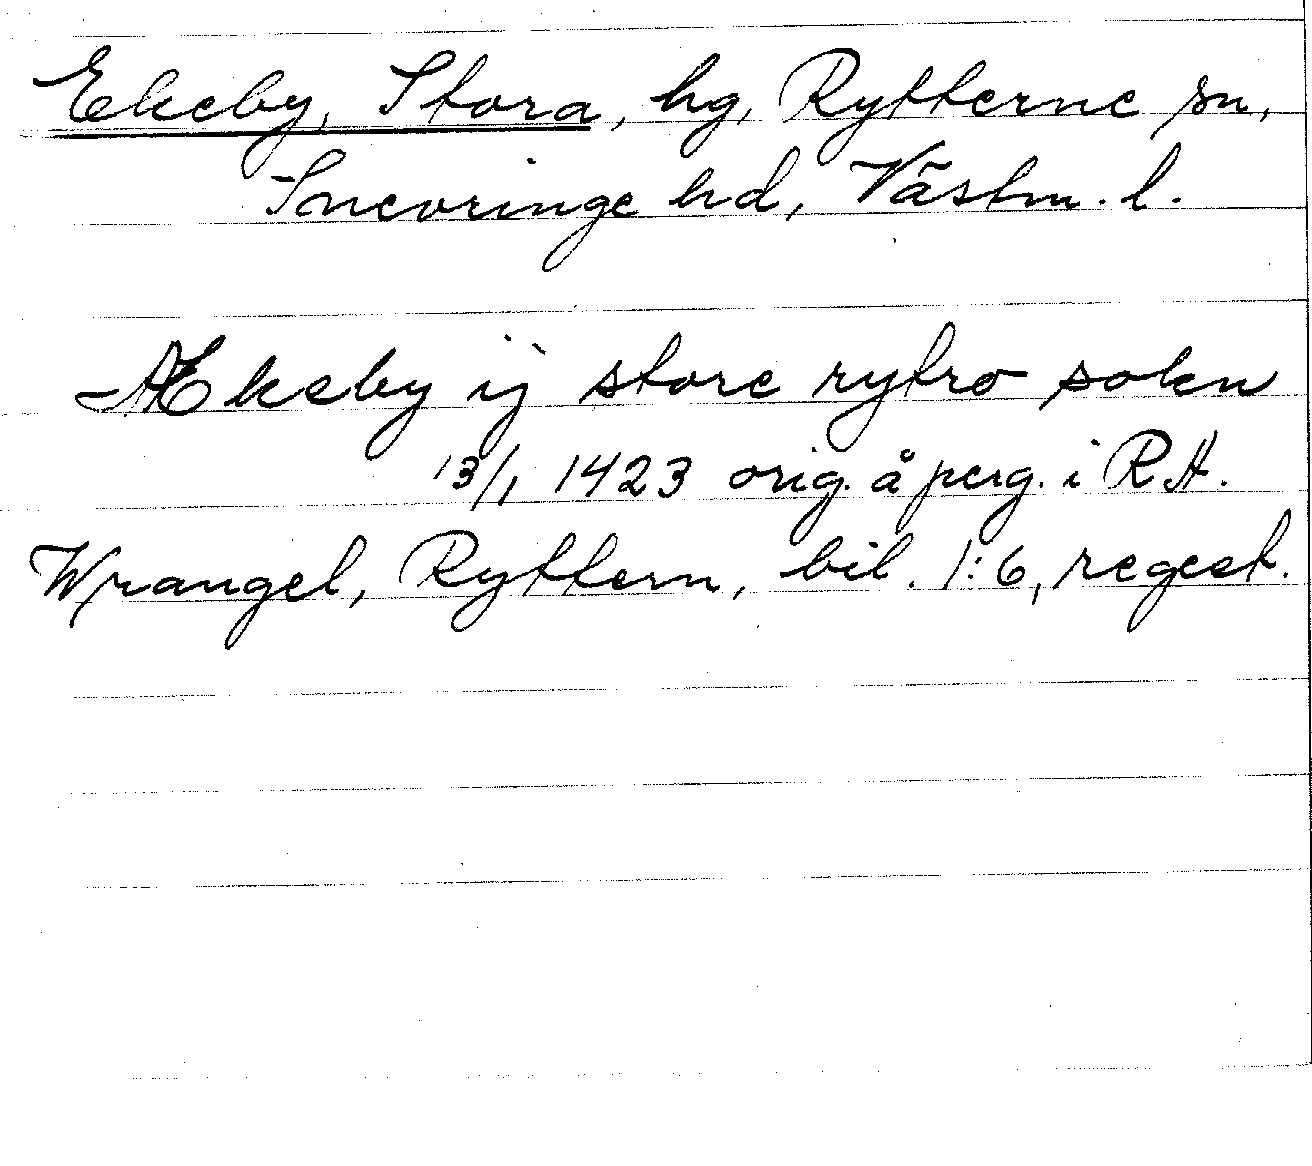 Ekeby, Stora, hg, Rytterne sn,
Snevringe hd, Västm. l.
Ækeby ij store rytro sokn
13/1 1423 orig. å perg. i RA.
Wrangel, Ryttern, bil. 1:6, regest.